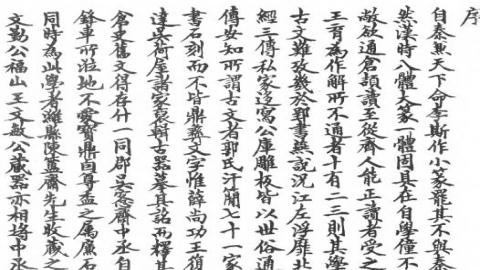 序
自秦兼天下命李斯作小篆罷其不與秦
然漢時八體大家一體固具在自學僮不
敞欲通倉頡讀至從齊人能正讀者受之
王育為作解所不通者十有二三則其學
古文難攷幾於郢書燕說況江左浮靡北
經三傳私家迻寫公庫雕板皆以世俗通
傳安知所謂古文者郭氏汗簡七十一家
書石刻而不皆鼎彝文字惟薛尚功王復
達吳荷屋諸家裒輯古器摹其銘而釋其
倉史舊文得存什一同郡吳愙齋中丞自
鋒車所蒞地不愛寶鼎卣尊盉之屬廉石
同時為此學者濰縣陳簠齋先生收藏之
文勤公福山王文敏公藏器亦相埒中丞